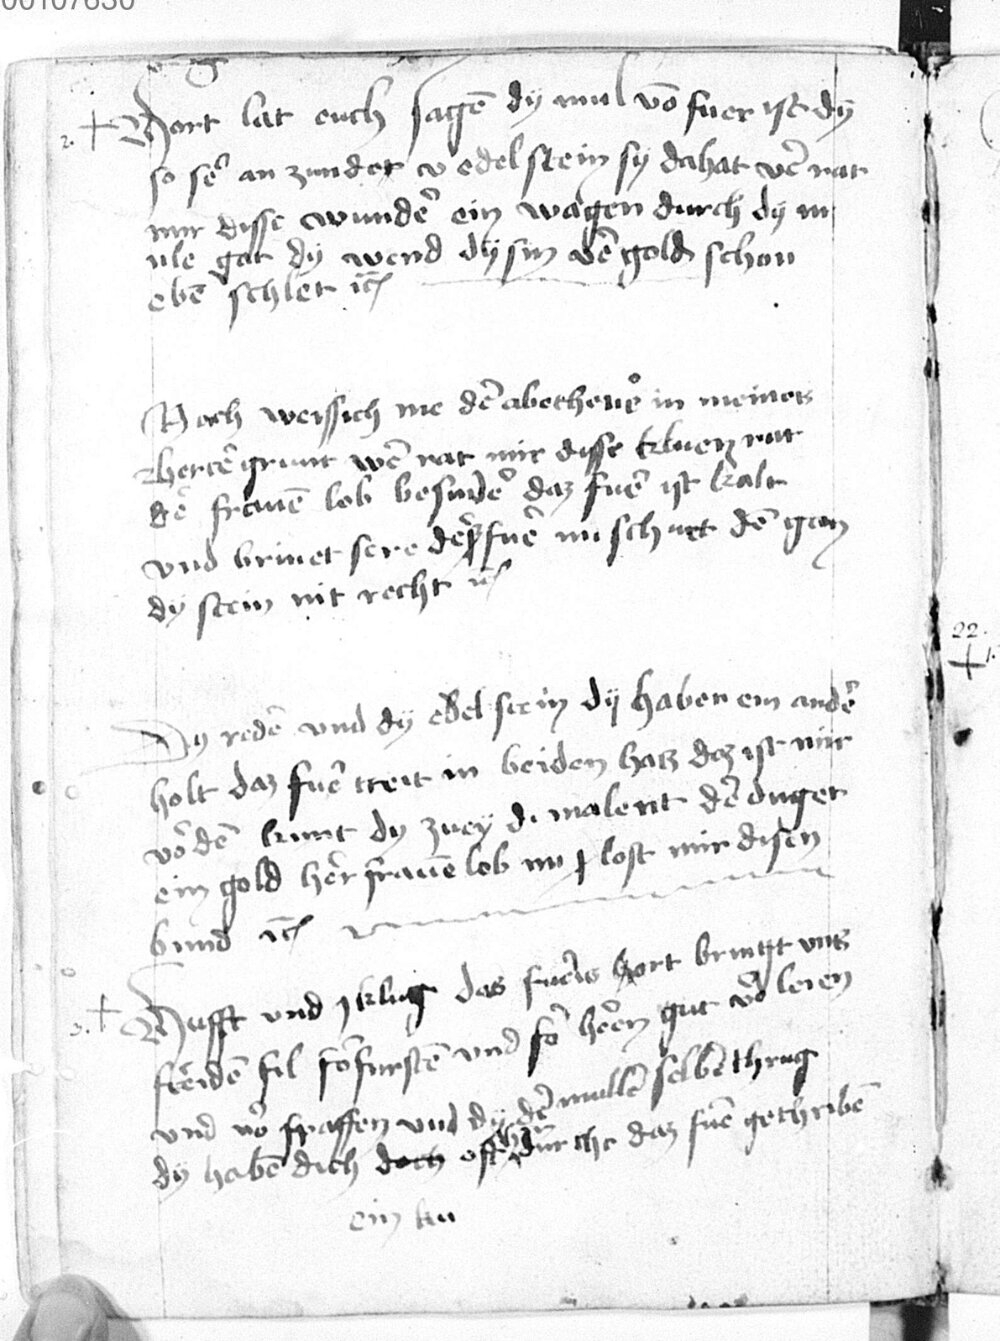 00107630
2. Wort lat euch sagē dy mul vō fuer ist dy
so sēr an zundet v edel stein sy dahat wēr rat
mir disse wundēr ein wagen durch dy m
ule gat dy wend dy sin vē gold schon
ebē schlet ic
Noch weissich me dē abetheuer in meines
hertē grunt wēr rat mir disse kluen rat
dē fraūē lob besundēr daz fuēr ist kalt
vnd brinet sere dē fuēr mischt dē gan
dy stein nit recht ic
Dy redē vnd dy edel stein dy haben ein andēr
holt daz fuēr treit in beiden has daz ist mir
vō dē kumt dy zuey di malent dē duget
ein gold hēr fraūē lob nu lost mir disen
bund ic
3. Wafft vnd klug das fuers hort bringt vns
freidē fil fō furstē vnd fō herēn gut vō leren
vnd vō pfaffen vnd dy dē mullē selbē thrug
dy habē dich doch oft durche daz fuēr gethribē
ein ku
22.
1.